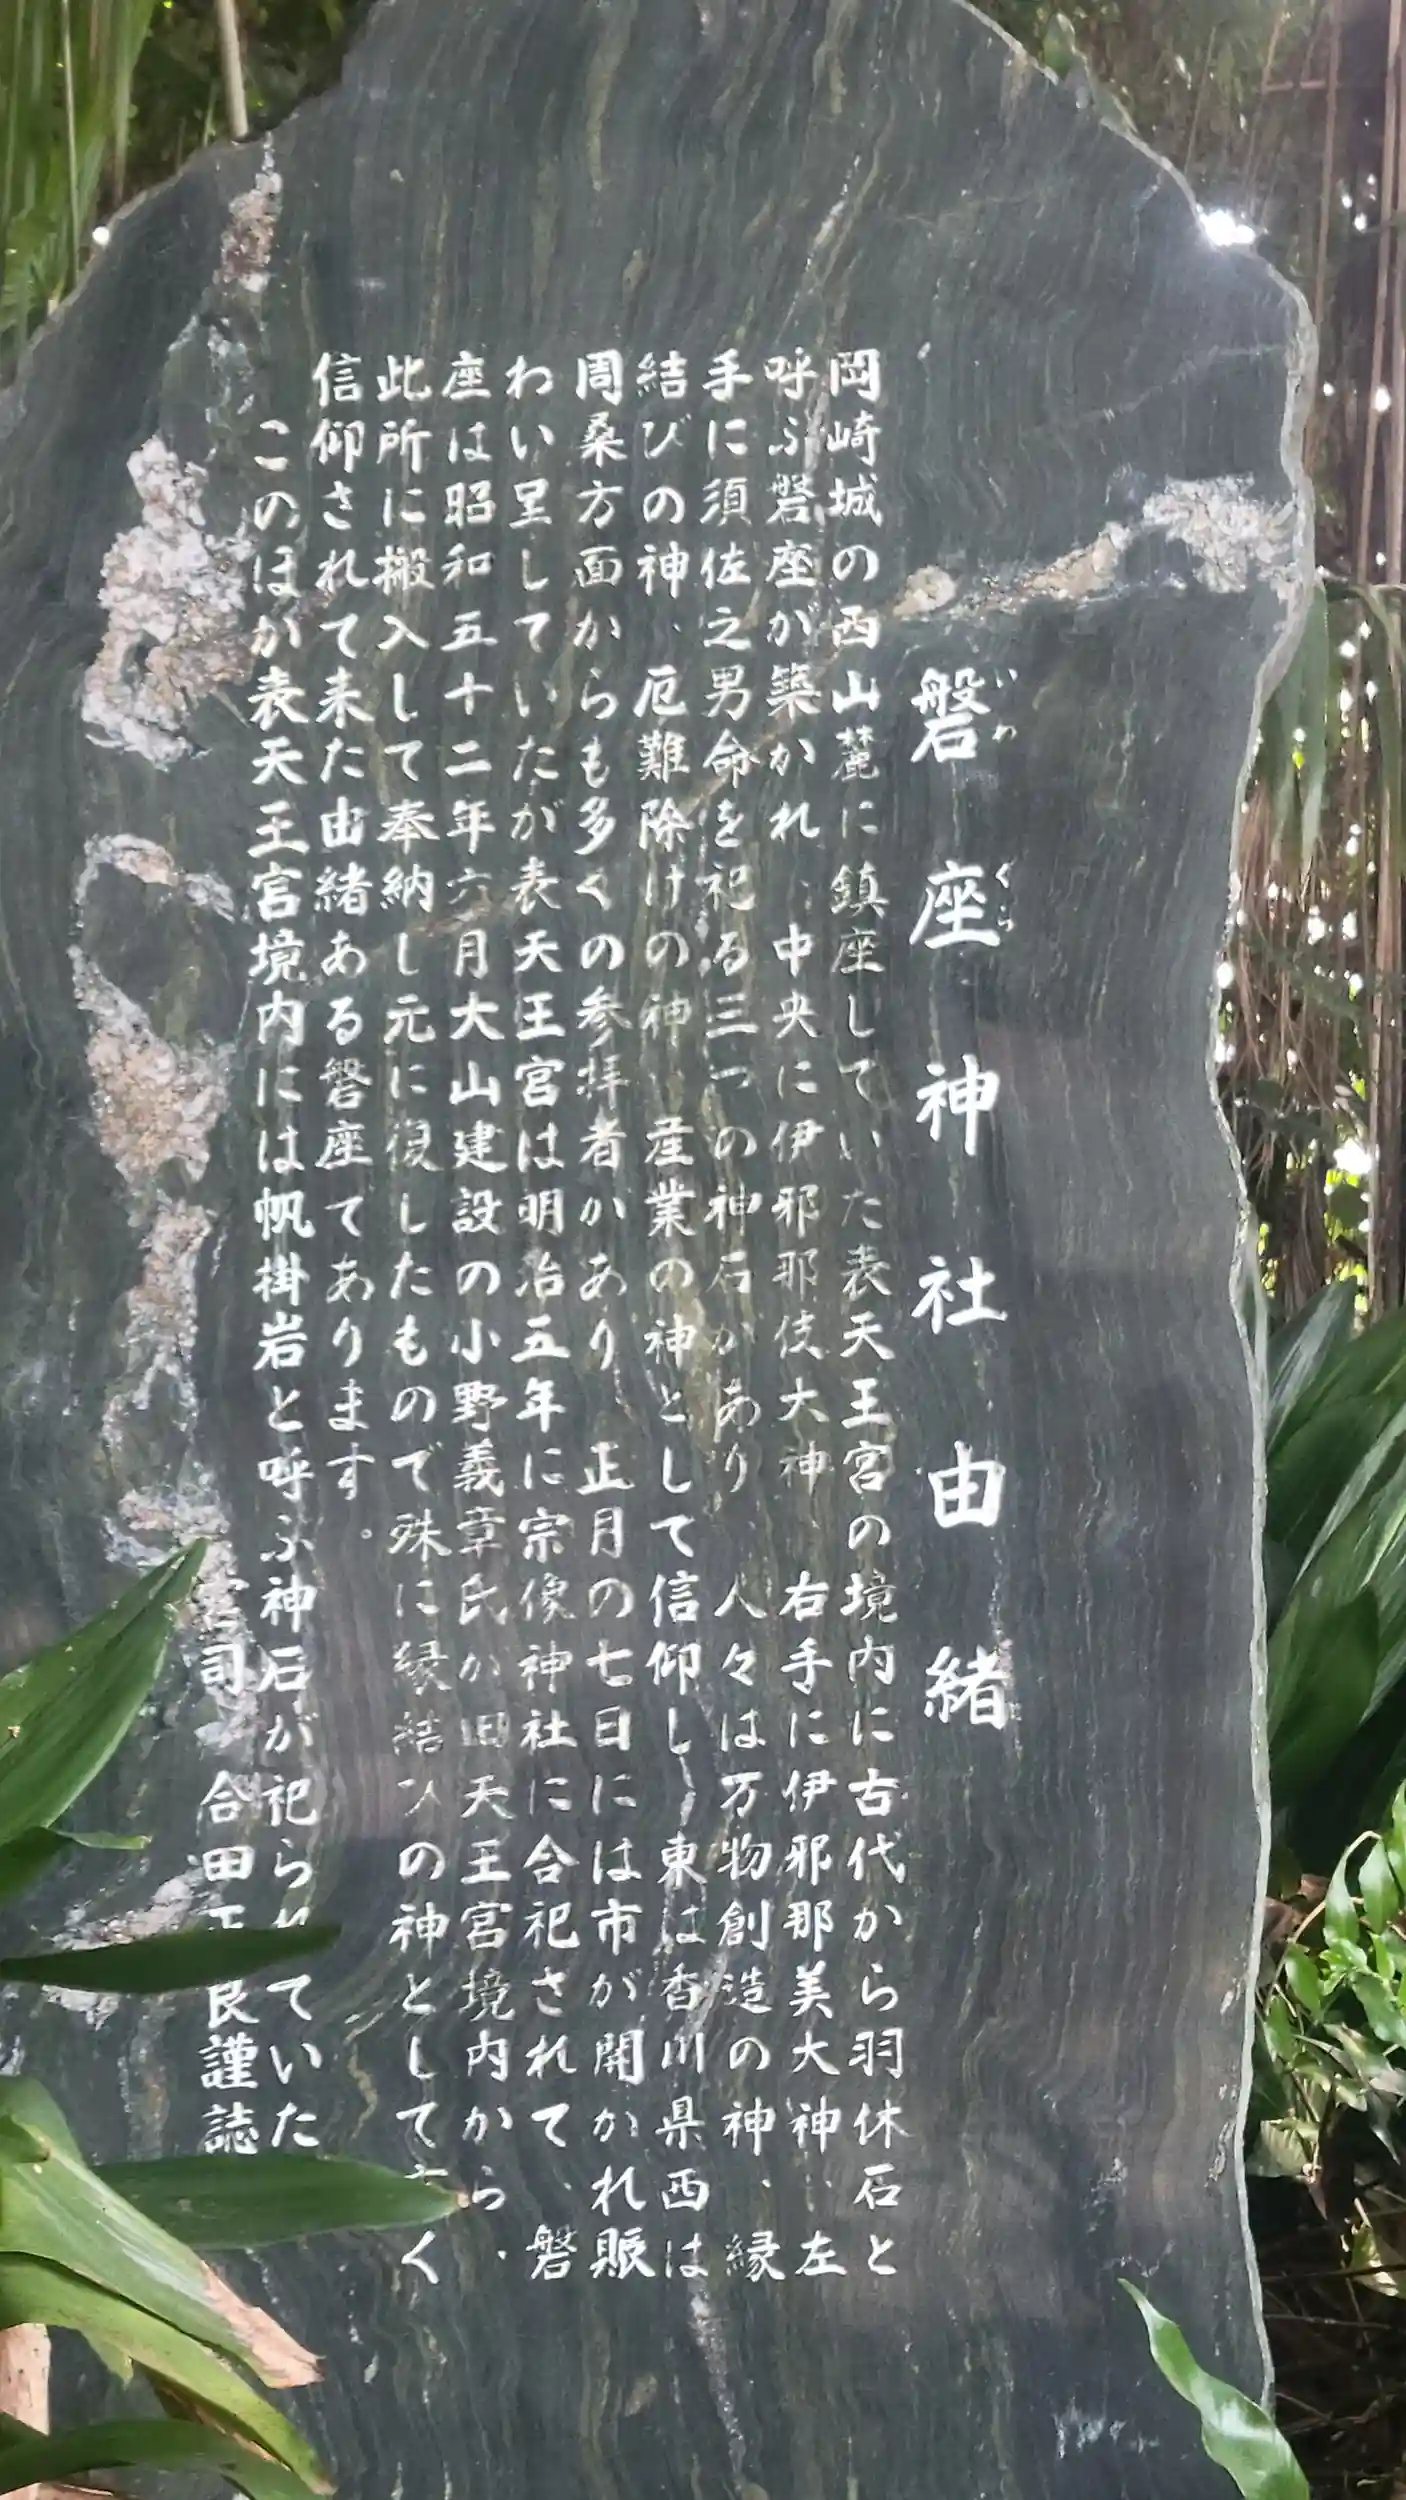 磐座神社由緒
いわ くら
岡崎城の西山麓に鎮座していた表天王宮の境内に古代から羽休石と
呼ぶ磐座が築かれ、中央に伊邪那伎大神 右手に伊邪那美大神、左
手に須佐之男命を祀る三つの神石があり、人々は万物創造の神、縁
結びの神、厄難除けの神 産業の神として信仰し、東は香川県西は
周桑方面からも多くの参拝者があり 正月の七日には市が開かれ賑
わい呈していたが表天王宮は明治五年に宗像神社に合祀されて、磐
座は昭和五十二年六月大山建設の小野義章氏が旧天王宮境内から、
此所に搬入して奉納し元に復したもので殊に縁結びの神として く
信仰されて来た由緒ある磐座てあります。
このほが表天王宮境内には帆掛岩と呼ぶ神石が祀られていた
宮司 合田 良謹誌